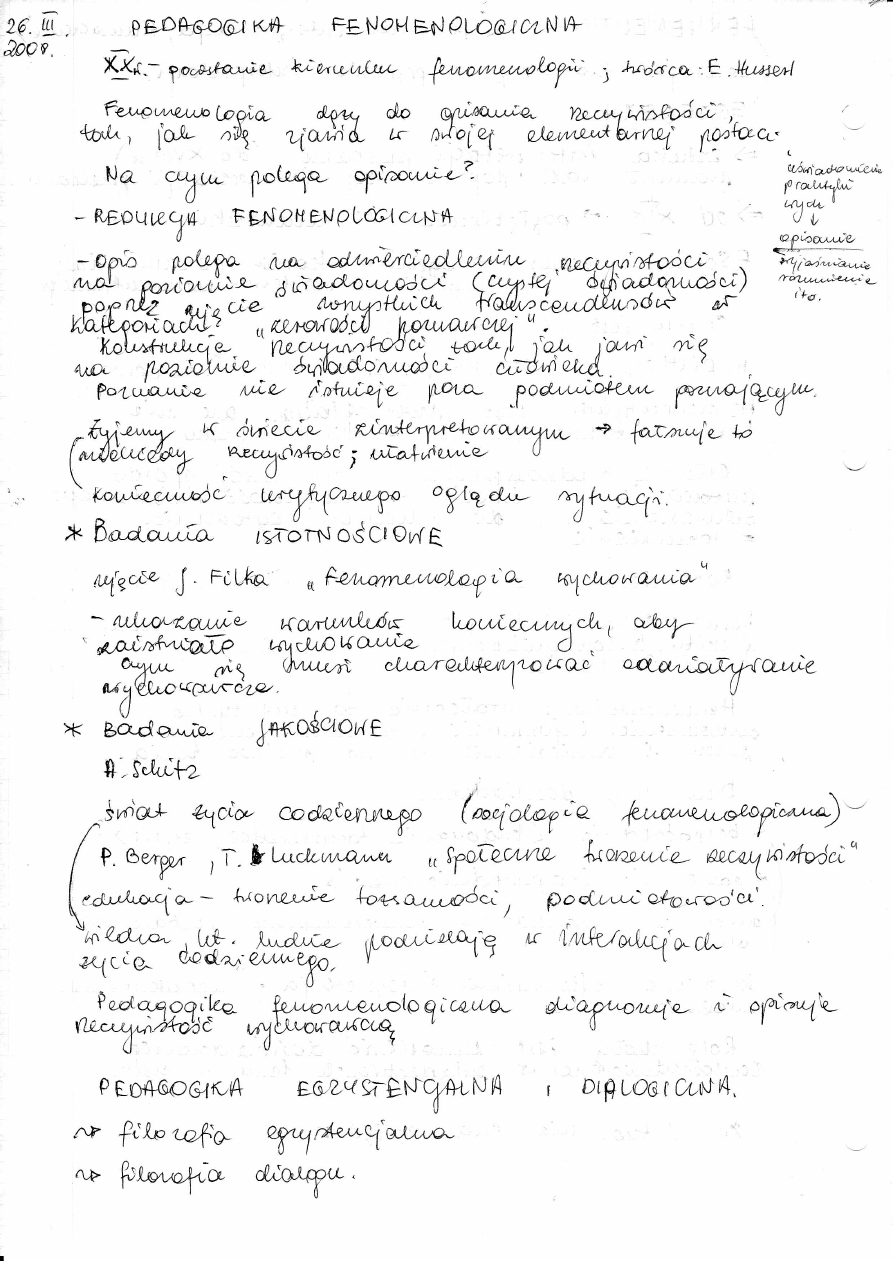 26. III 2008.
PEDAGOGIKA FENOMENOLOGICZNA
XXw. - powstanie kierunku fenomenologii ; twórca: E. Husserl
Fenomenologia dąży do opisania rzeczywistości,
tak, jak się zjawia w swojej elementarnej postaci.
Na czym polega opisanie?
- REDUKCJA FENOMENOLOGICZNA
uświadomienie
praktyki
wych
↓
opisanie
wyjaśnianie
rozumienie
itp.
- Opis polega na odzwierciedleniu rzeczywistości
na poziomie świadomości (czystej świadomości)
poprzez ujęcie wszystkich transcendensów w
kategoriach? „zerowości poznawczej".
Konstrukcja rzeczywistości tak, jak jawi się
na poziomie świadomości człowieka.
Poznanie nie istnieje poza podmiotem poznającym.
Żyjemy w świecie zinterpretowanym → fałszuje to
niekiedy rzeczywistość ; ułatwienie
konieczność krytycznego oglądu sytuacji.
* Badania ISTOTNOŚCIOWE
ujęcie J. Filka „Fenomenologia wychowania"
- ukazanie warunków koniecznych, aby
zaistniało wychowanie
czym się musi charakteryzować oddziaływanie
wychowawcze.
* Badania JAKOŚCIOWE
A. Schitz
świat życia codziennego (socjologia fenomenologiczna)
P. Berger, T. Luckmann „Społeczne tworzenie rzeczywistości"
edukacja - tworzenie tożsamości, podmiotowości.
wiedza, kt. ludzie podzielają w interakcjach
życia codziennego.
Pedagogika fenomenologiczna diagnozuje i opisuje
rzeczywistość wychowawczą
PEDAGOGIKA EGZYSTENCJALNA I DIALOGICZNA.
→ filozofia egzystencjalna
→ filozofia dialogu.